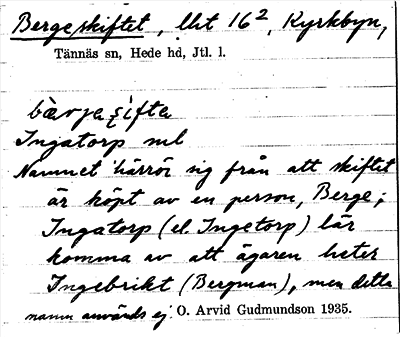 Bergeskiftet, lht 16², Kyrkbyn,
Tännäs sn, Hede hd, Jtl. l.
bærjaʂifta
Ingatorp ml
Namnet härrör sig från att skiftet
är köpt av en person, Berge;
Ingatorp (el. Ingetorp) lär
komma av att ägaren heter
Ingebrikt (Bergman), men detta
namn används ej. O. Arvid Gudmundson 1935.